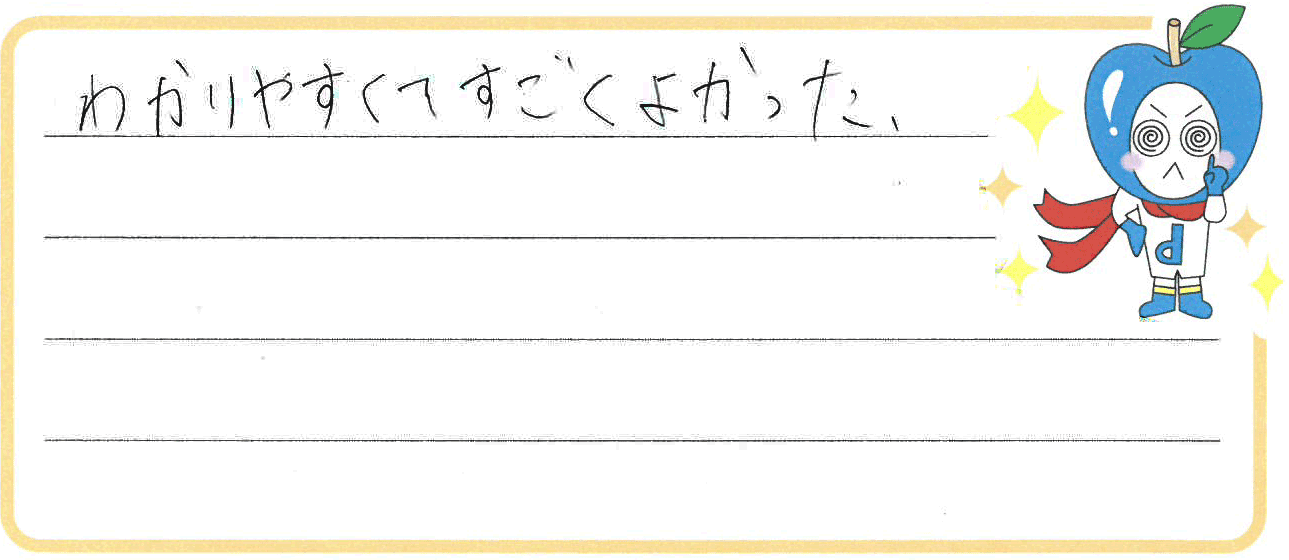 わかりやすくてすごくよかった、
d